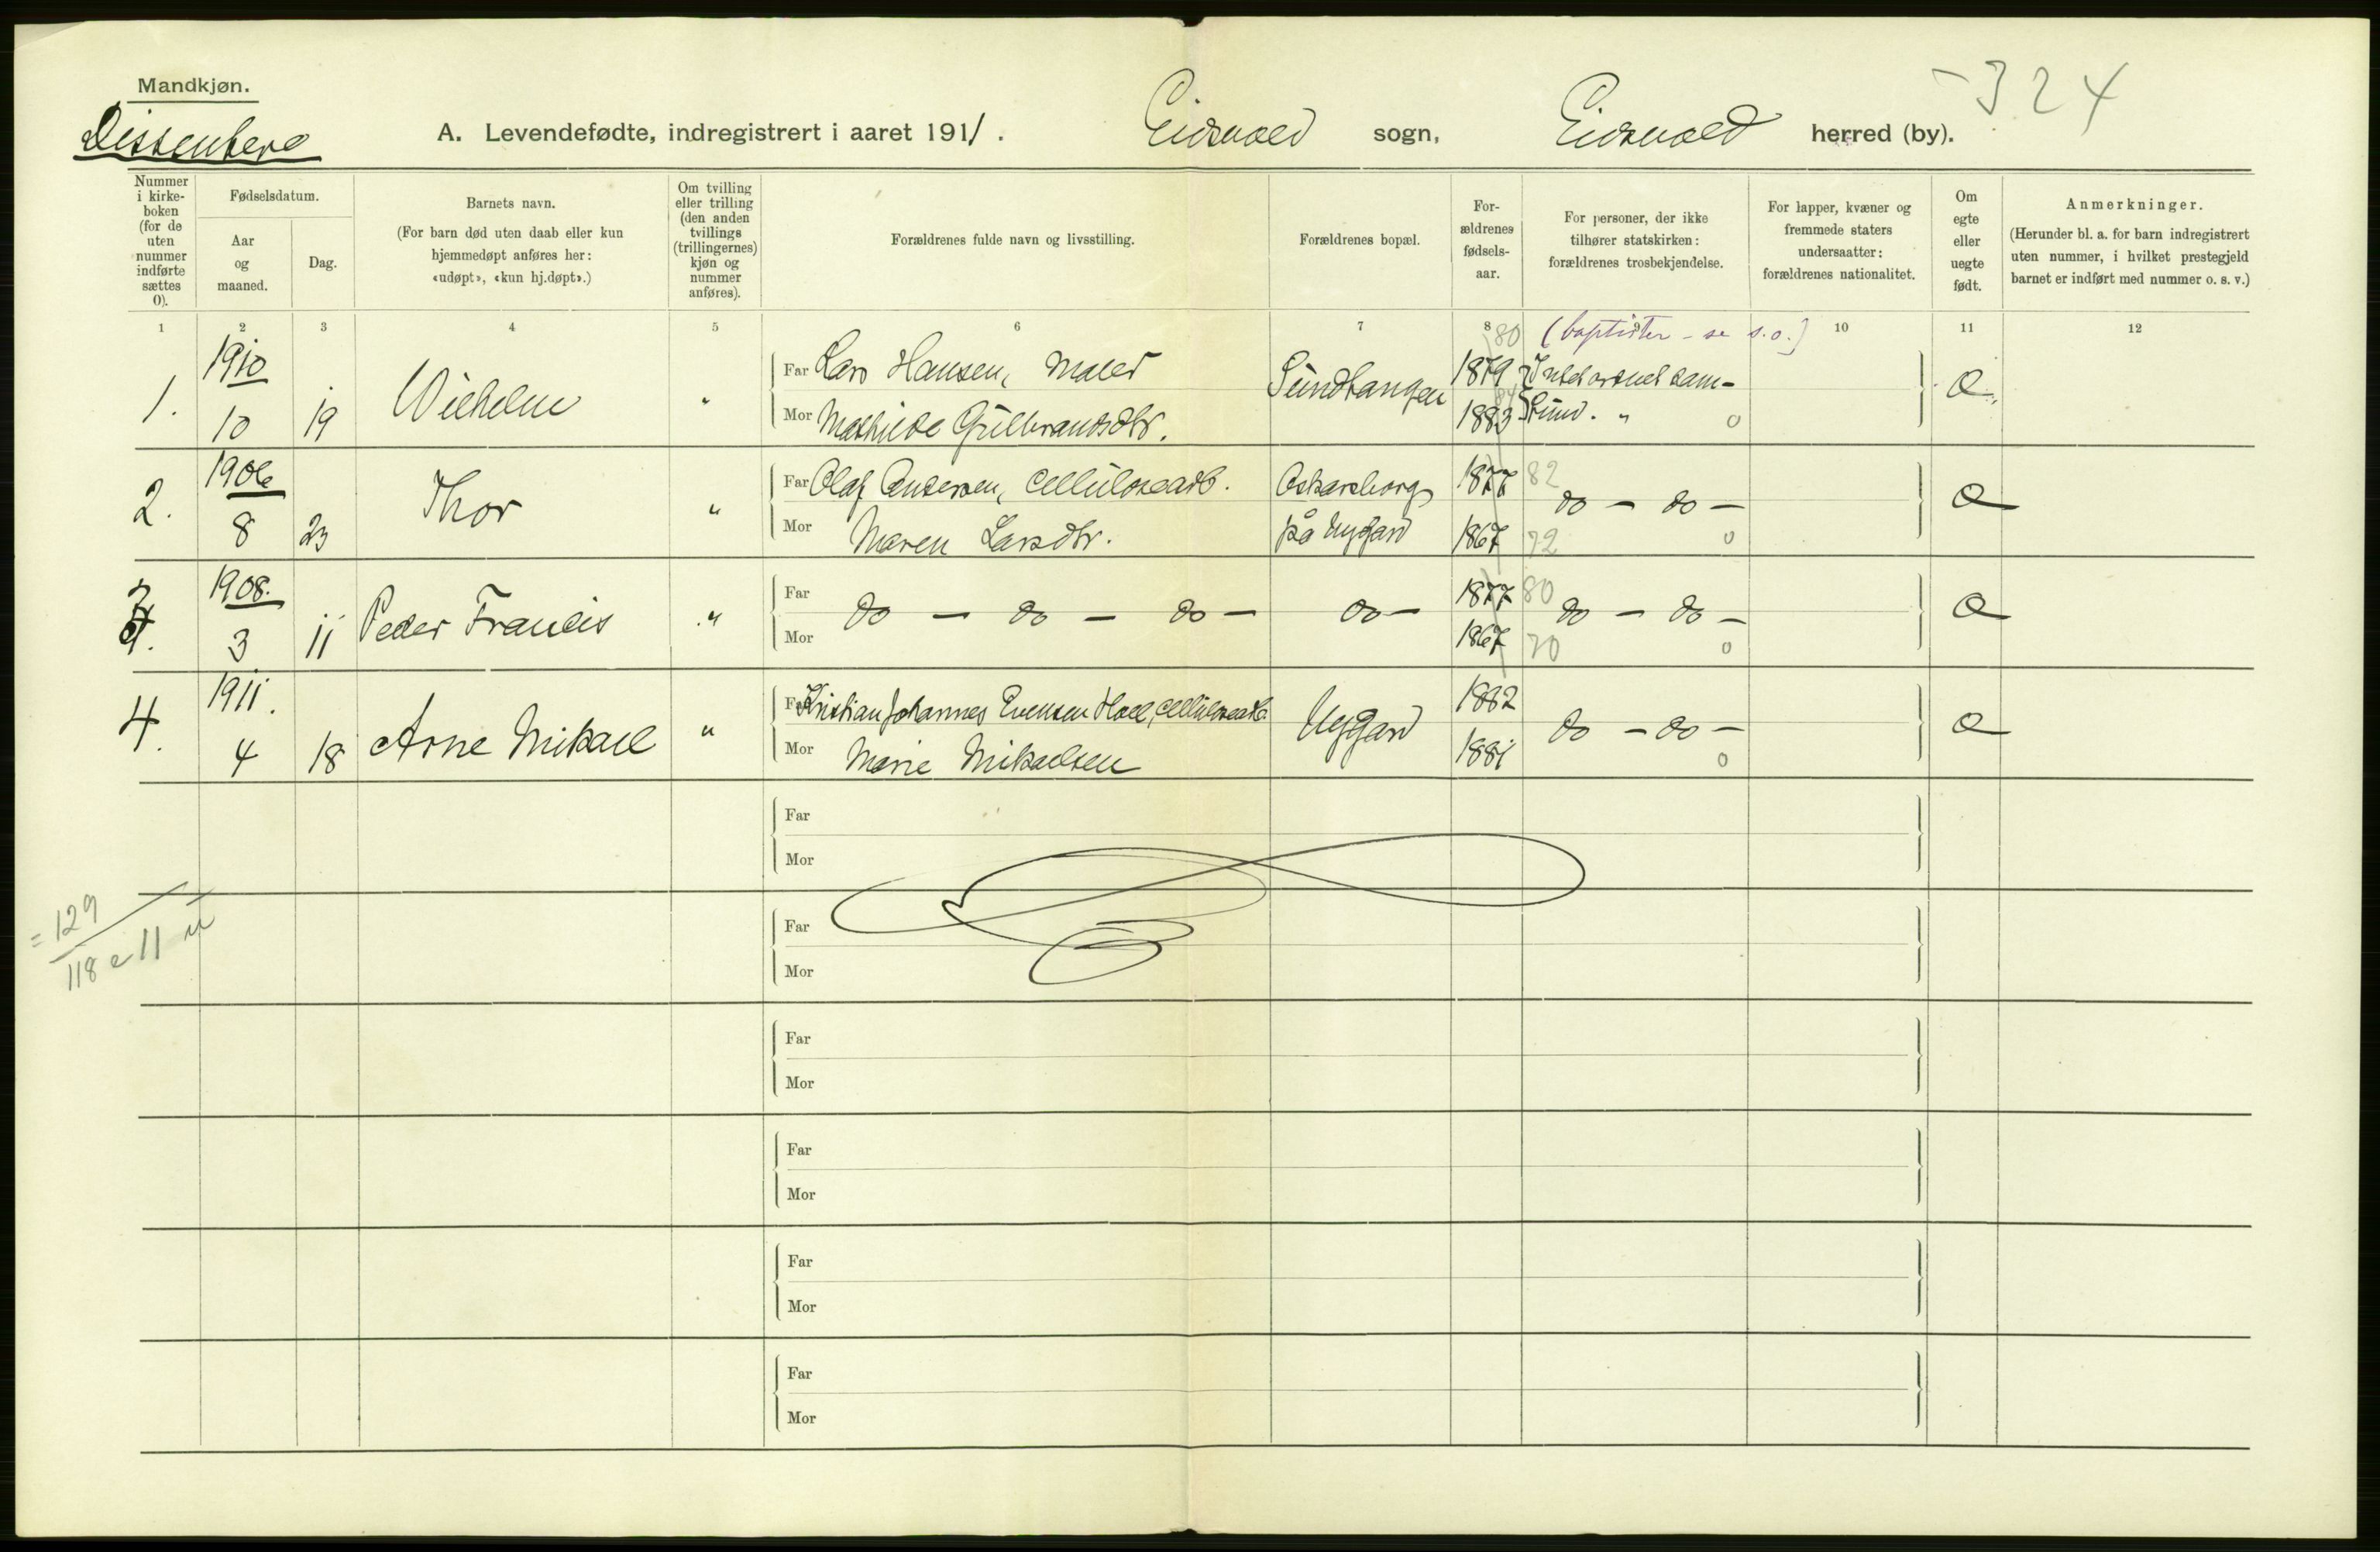 Mandkjøn.
Dissentere
A. Levendefødte, indregistrert i aaret 1911. Eidsvold sogn, Eidsvold herred (by).
324
Nummer i kirke-boken (for de uten nummer indførte sættes 0).
Fødselsdatum.
Aar og maaned.
Dag.
Barnets navn.
(For barn død uten daab eller kun hjemmedøpt anføres her: «udøpt», «kun hj.døpt».)
Om tvilling eller trilling (den anden tvillings (trillingernes) kjøn og nummer anføres).
Forældrenes fulde navn og livsstilling.
Forældrenes bopæl.
For-ældrenes fødsels-aar.
For personer, der ikke tilhører statskirken: forældrenes trosbekjendelse.
For lapper, kvæner og fremmede staters undersaatter: forældrenes nationalitet.
Om egte eller uegte født.
Anmerkninger.
(Herunder bl. a. for barn indregistrert uten nummer, i hvilket prestegjeld barnet er indført med nummer o. s. v.)
1 2 3 4 5 6 7 8 9 10 11 12
80 (baptister - se s.o.)
1. 1910 10 19 Wilhelm "
Far Lars Hansen, Maler
Mor Mathilde Gulbrandsdtr.
Sundtangen 1879 1883 84
sam-
fund. " 0
e
2. 1906 8 23 Thor "
Far Olaf Andersen, Cellulosearb.
Mor Maren Larsdtr.
Oskarsborg
på Nygard
1877 82 do - do -
1867 72 0
e
3. 1908. 3 11 Peder Francis "
Far
Mor
do - do - do - do -
1877 80 do - do -
1867 70 0
e
4. 1911. 4 18 Arne Mikael "
Far Kristian Johannes Evensen Hoel, Cellulosearb.
Mor Marie Mikaelsen
Nygard
1882
1881
do - do -
0
e
Far
Mor
= 129
118 e 11 u
Far
Mor
Far
Mor
Far
Mor
Far
Mor
Far
Mor